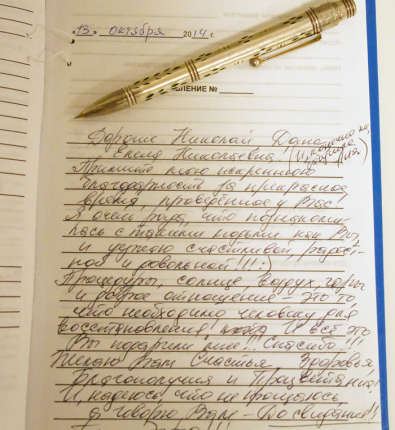 13 октября 2014 г.
ЛЕНИЕ №
Дорогие Николай
Елена Николаевна
Примите мою искреннюю
благодарность за прекрасное
время, проведённое у Вас!
Я очень рада, что познакоми-
лась с такими людьми как Вы,
и уезжаю счастливой, радост-
ной и довольной!!! :)
Процедуры, солнце, воздух, горы
и доброе отношение – это то,
что необходимо человеку для
восстановления И всё это
Вы подарили мне!!! Спасибо!!!
Желаю Вам Счастья, Здоровья,
Благополучия и Процветания!
И, надеюсь, что не прощаюсь,
а говорю Вам – До свидания!!